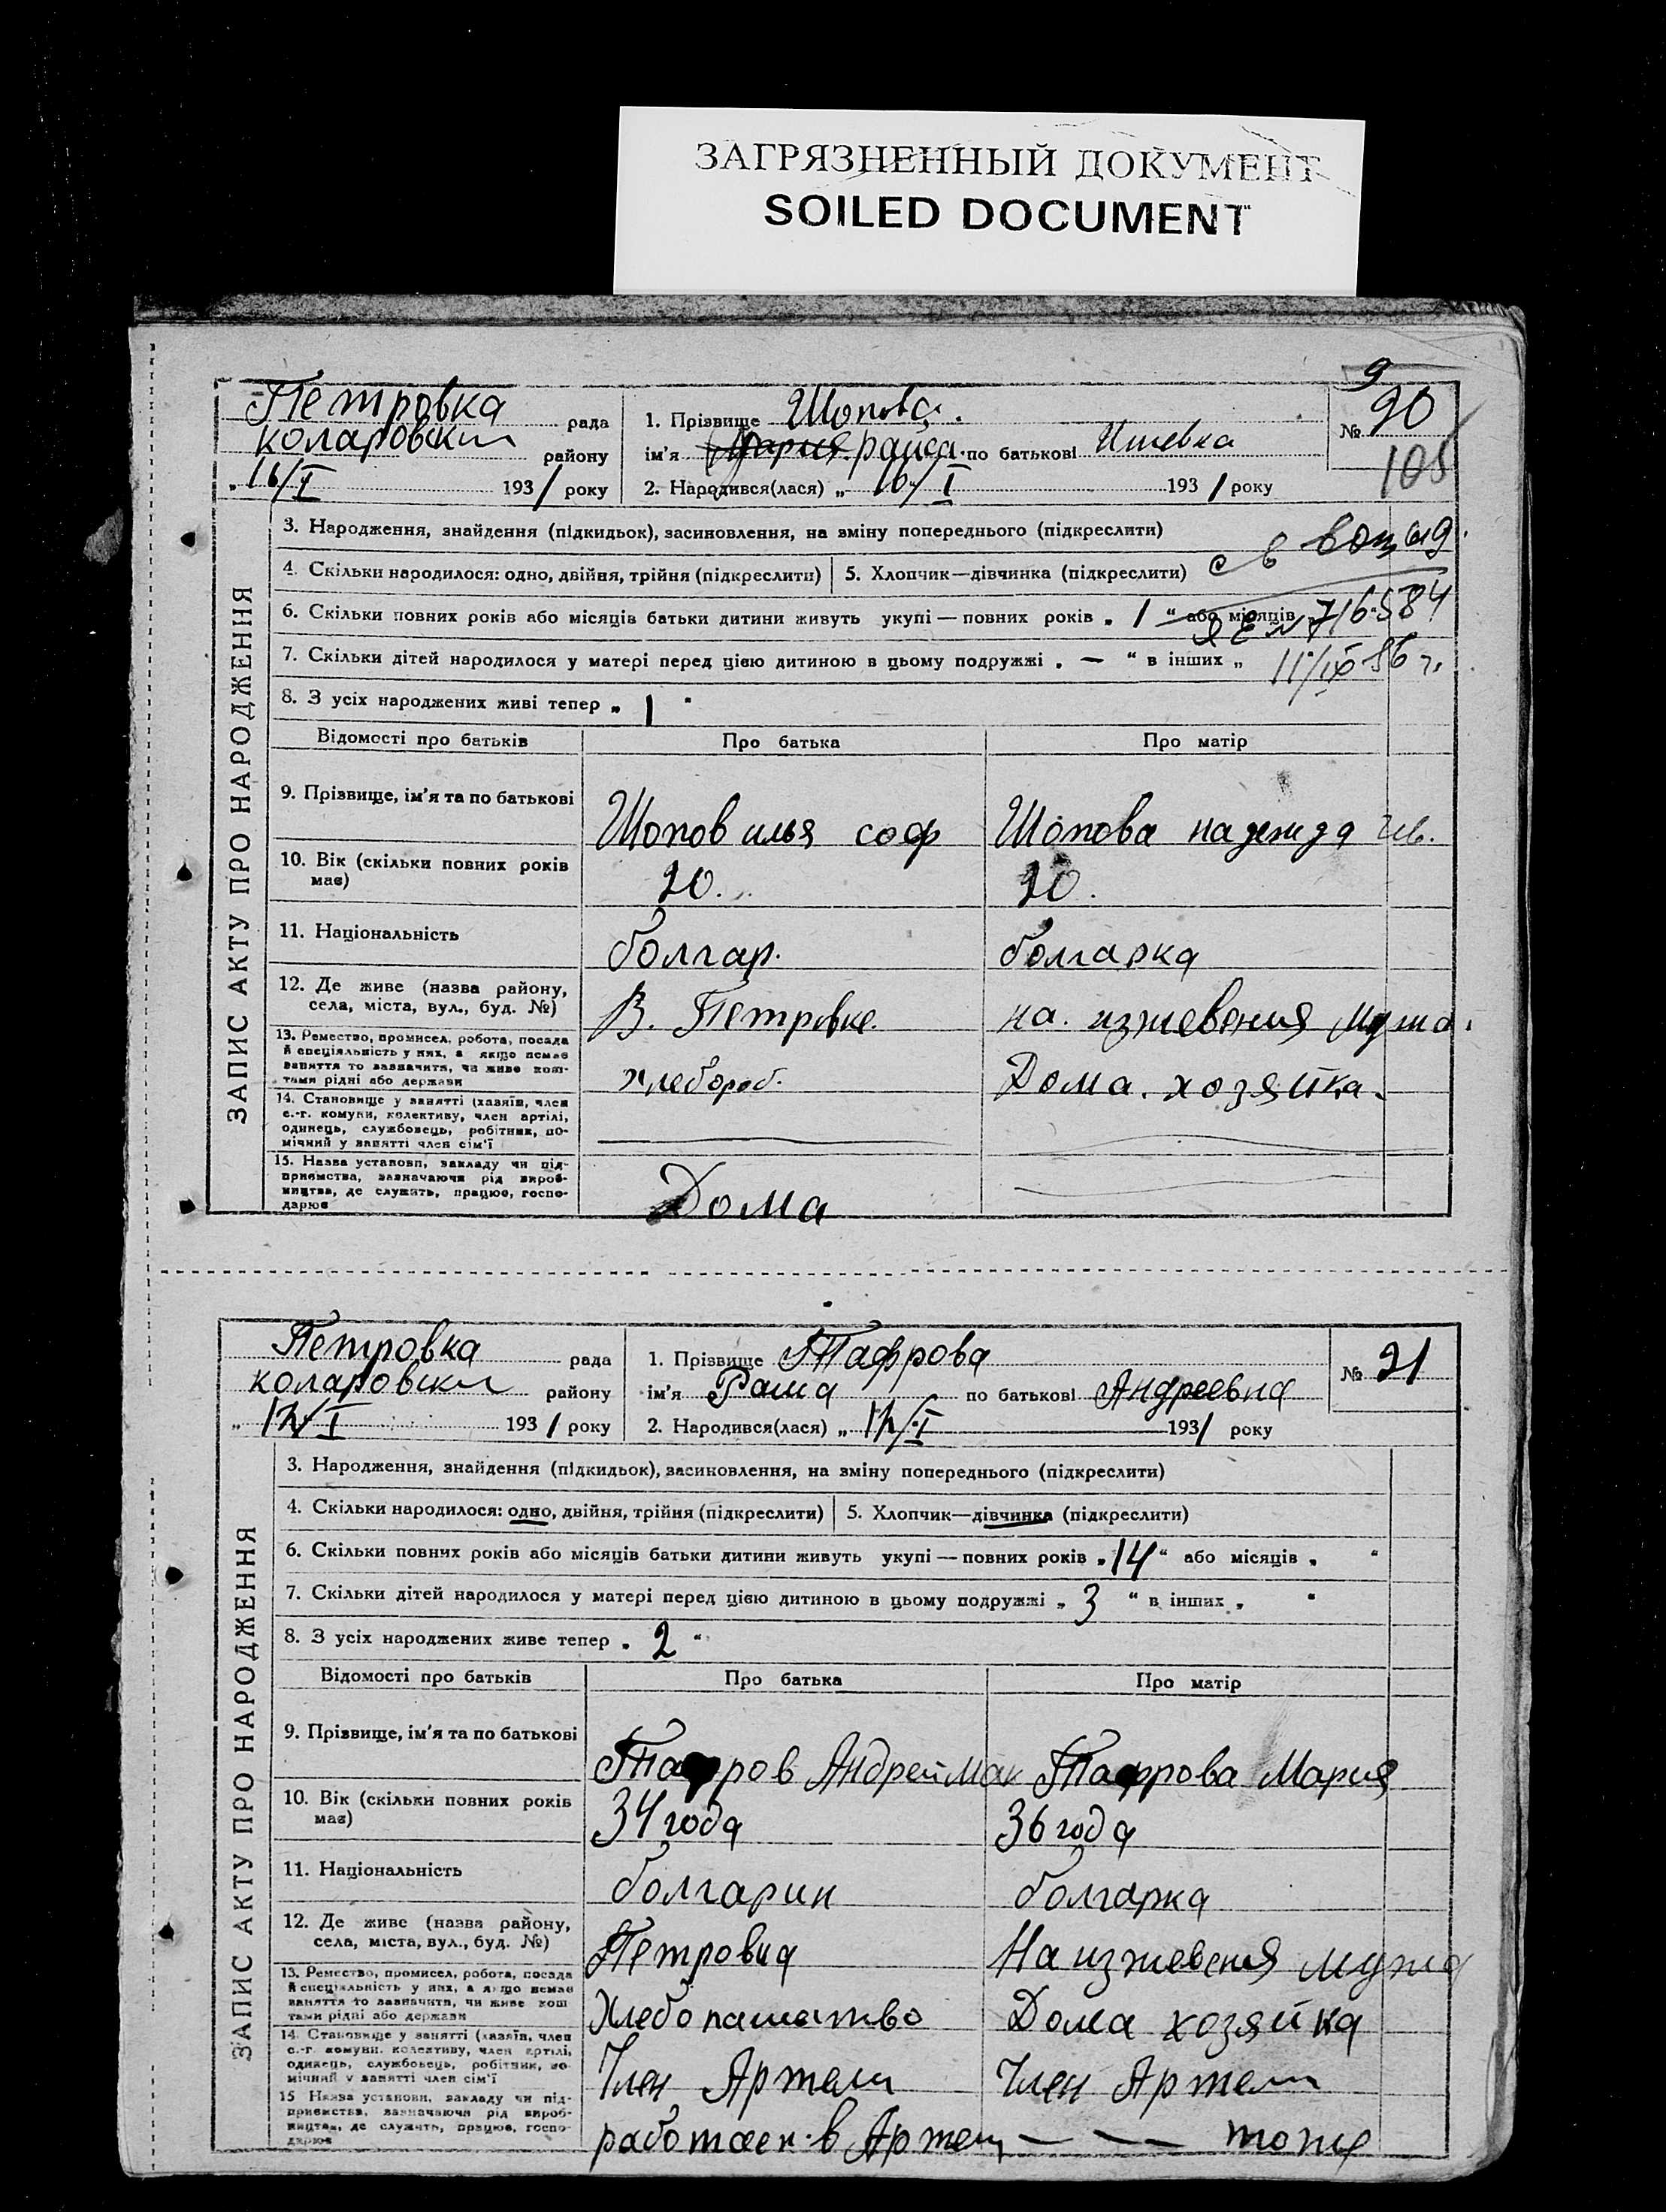 ЗАГРЯЗНЕННЫЙ ДОКУМЕНТ
SOILED DOCUMENT
9
Петровка рада
коларовски району
„16/I 1931 року
1. Прізвище Шопова.
ім'я Мария раиса. по батькові
2. Народився(лася) „16/I 1931 року
№ 20
105
3. Народження, знайдення (підкидьок), засиновлення, на зміну попереднього (підкреслити)
4. Скільки народилося: одно, двійня, трійня (підкреслити)
5. Хлопчик—дівчинка (підкреслити)
6. Скільки повних років або місяців батьки дитини живуть укупі — повних років „ 1 “ або місяців
716584
7. Скільки дітей народилося у матері перед цією дитиною в цьому подружжі „ — “ в інших „
11/IX 86 г.
8. З усіх народжених живі тепер „ 1 “
ЗАПИС АКТУ ПРО НАРОДЖЕННЯ
Відомості про батьків
Про батька
Про матір
9. Прізвище, ім'я та по батькові
Шопов илья соф
Шопова надежда Ив.
10. Вік (скільки повних років має)
20.
20.
11. Національність
болгар.
болгарка
12. Де живе (назва району, села, міста, вул., буд. №)
В. Петровке.
на. изжевения мужа.
13. Ремество, промисел, робота, посада й спеціяльність у них, а якщо немає заняття то зазначити, чи живе коштами рідні або держави
хлебороб.
Дома. хозяйка.
14. Становище у занятті (хазяїн, член с.-г. комуни, колективу, член артілі, одинець, службовець, робітник, помічний у занятті член сім'ї
15. Назва установи, закладу чи підприємства, зазначаючи рід виробництва, де служить, працює, господарює
Дома
Петровка рада
коларовски району
„12/I 1931 року
1. Прізвище Тафрова
ім'я Раша по батькові Андреевна
2. Народився(лася) „12/I 1931 року
№ 21
3. Народження, знайдення (підкидьок), засиновлення, на зміну попереднього (підкреслити)
4. Скільки народилося: одно, двійня, трійня (підкреслити)
5. Хлопчик—дівчинка (підкреслити)
6. Скільки повних років або місяців батьки дитини живуть укупі — повних років „14“ або місяців „ “
7. Скільки дітей народилося у матері перед цією дитиною в цьому подружжі „ 3 “ в інших „ “
8. З усіх народжених живе тепер „ 2 “
ЗАПИС АКТУ ПРО НАРОДЖЕННЯ
Відомості про батьків
Про батька
Про матір
9. Прізвище, ім'я та по батькові
Тафров Андрей Мак
Тафрова Мария
10. Вік (скільки повних років має)
34 года
36 года
11. Національність
болгарин
болгарка
12. Де живе (назва району, села, міста, вул., буд. №)
Петровка
На изжевения мужа
13. Ремество, промисел, робота, посада й спеціяльність у них, а якщо немає заняття то зазначити, чи живе коштами рідні або держави
Хлебопашество
Дома хозяйка
14. Становище у занятті (хазяїн, член с.-г. комуни, колективу, член артілі, одинець, службовець, робітник, помічний у занятті член сім'ї
Член Артели
Член Артели
15 Назва установи, закладу чи підприємства, зазначаючи рід виробництва, де служить, працює, господарює
работаен в Артели — — — тоже